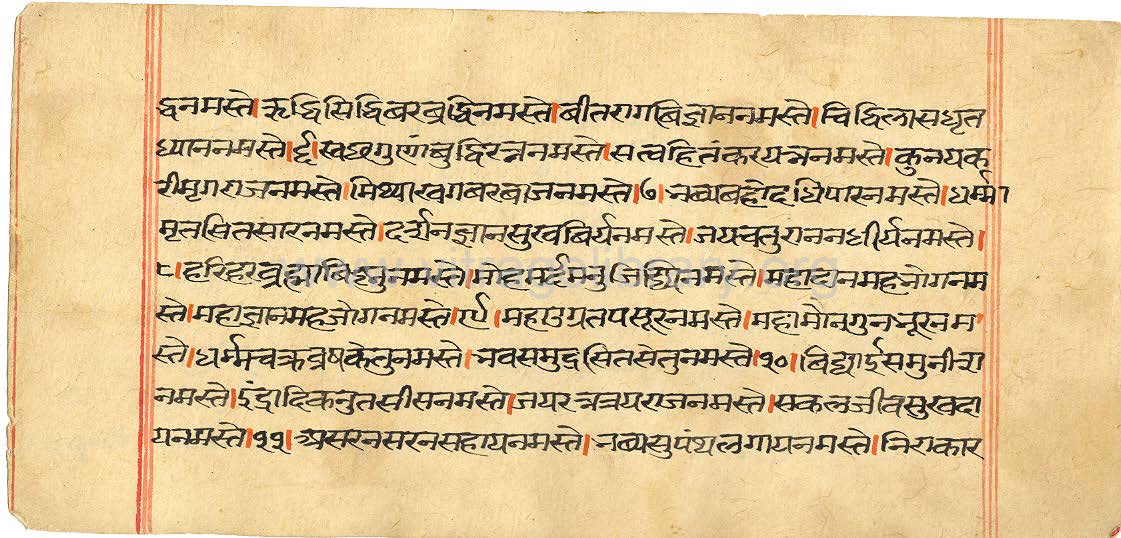 द्धनमस्ते।ऋद्धिसिद्धिबरब्रद्धिनमस्ते।बीतरागबिज्ञाननमस्ते।चिद्विलासधृत
ध्याननमस्ते।६।स्वछगुणांबुद्धिरत्ननमस्ते।सत्वहितंकरयत्ननमस्ते।कुनयक
रीमृगराजनमस्ते।मिथ्याखगबरबाजनमस्ते।७।भव्यबहोदधिपारनमस्ते।धर्म्मा
मृतसितसारनमस्ते।दर्शनज्ञानसुखबिर्यनमस्ते।जयचतुराननधीर्यनमस्ते।
८।हरिहरब्रह्माबिष्नुनमस्ते।मोहमर्द्दमनुजिष्निनमस्ते।महादानमहभोगनम
स्ते।महाज्ञानमहजोगनमस्ते।९।महाउग्रतपसूरनमस्ते।महामौनगुनभूरनम
स्ते।धर्म्मचक्रब्रषकेतुनमस्ते।भवसमुद्रसितसेतुनमस्ते।१०।बिद्याईसमुनीश
नमस्ते।इंद्रादिकनुतसीसनमस्ते।जयरत्नत्रयराजनमस्ते।सकलजीवसुखदा
यनमस्ते।११।असरनसरनसहायनमस्ते।भव्यसुपंथलगायनमस्ते।निराकार
www.vitragalibrary.org